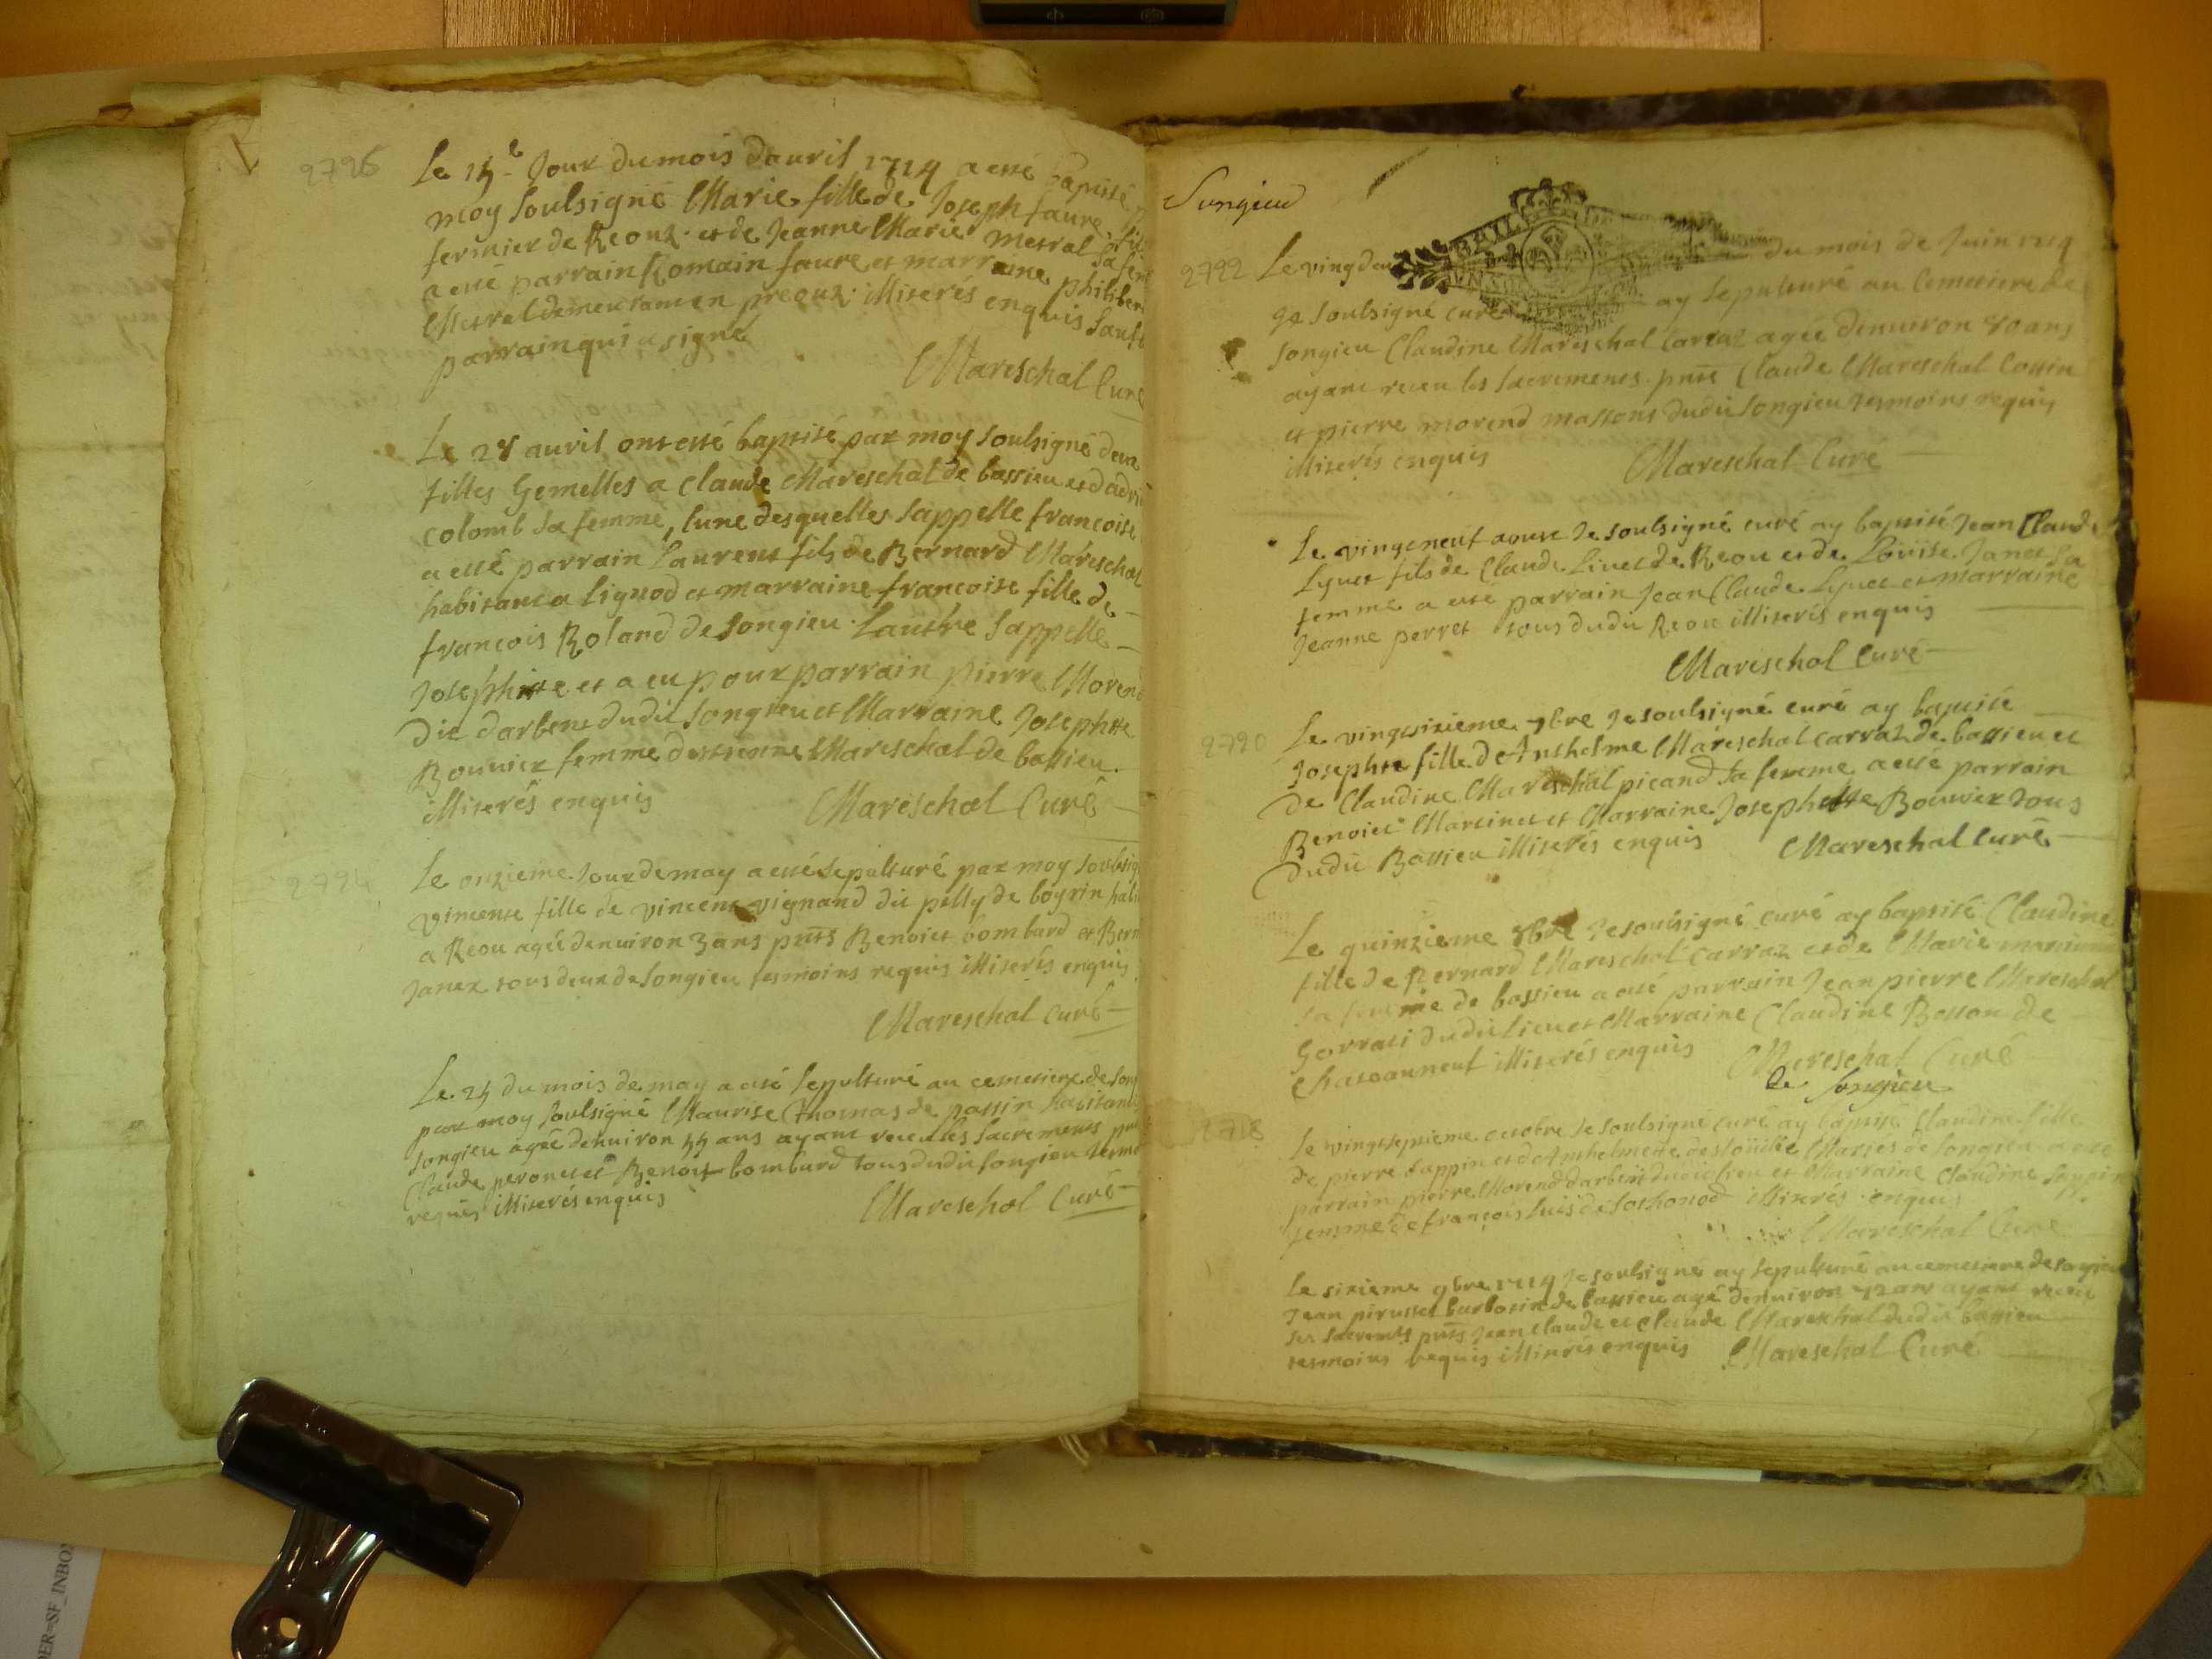 2726
Le 15e Jour du mois davril 1714 a esté baptisé
moy soulsigné Marie fille de Joseph faure
fermier de Reoux et de Jeanne Marie mestral sa fem
a esté parrain Romain faure et marraine philiber
Mestral demeurant en preoux illiterés enquis sauf
parrain qui a signé
Mareschal Curé
Le 28 avril ont esté baptisé par moy soulsigné deux
filles Gemelles a Claude Mareschal de bassieu et dadri
colomb sa femme, lune desquelles sappelle francoise
a esté parrain Laurent fils de Bernard Mareschal
habitant a Lignod et marraine francoise fille de
françois Roland de songieu. Lautre sappelle
Josephtte et a eu pour parrain pierre Morend
Dit darbere dudit songieu et Marraine Josephtte
Bouvier femme destienne Mareschal de bassieu.
illiterés enquis Mareschal Curé
2724
Le onzieme Jour de may a esté sepulturé par moy soulsig
vincente fille de vincent vignand dit pelly de boyrin habi
a Reou agée denuiron 3 ans pnts Benoict bombard et Bern
Janex tous deux de songieu tesmoins requis illiterés enquis
Mareschal Curé
Le 25 du mois de may a esté sepulturé au cemetiere de son
par moy soulsigné Maurise Thomas de passin habitant
songieu agée denuiron 55 ans ayant receu les sacrements pnt
Claude peronet et Benoit bombard tous dudit songieu tesmo
requis illiterés enquis Mareschal Curé
Songieu
GEN BAIL
2722
Le vingdeux du mois de Juin 1714
Je soulsigné curé ay sepulturé au Cemetiere de
songieu Claudine Mareschal Carraz agée denuiron 80 ans
ayant receu les sacrements pnts Claude Mareschal Cottin
et pierre morend massons dudit songieu tesmoins requis
illiterés enquis Mareschal Curé
Le vingtneuf aoust Je soulsigné curé ay baptisé Jean Claude
Lyvet fils de Claude Livet de Reou et de Louise Janet sa
femme a esté parrain Jean Claude Lyvet et marraine
Jeanne perret tous dudit Reou illiterés enquis
Mareschal Curé
2720
Le vingtsixieme 7bre Je soulsigné curé ay baptisé
Josephte fille d'Anthelme Mareschal carraz de bassieu et
De Claudine Mareschal picand sa femme a esté parrain
Benoict Martinet et Marraine Josephtte Bouvier tous
dudit Bassieu illiterés enquis Mareschal Curé
Le quinzieme 8bre Je soulsigné curé ay baptisé Claudine
fille de Bernard Mareschal Carraz et de Marie
sa femme de bassieu a esté parrain Jean pierre Mareschal
dudit lieu et Marraine Claudine Besson de
Chateauneuf illiterés enquis Mareschal Curé
de Songieu
2718
Le vingtseptieme octobre Je soulsigné curé ay baptisé Claudine fille
de pierre Sappin et d'Anthelmette Mariés de songieu a esté
parrain pierre Morend darbere dudit lieu et Marraine Claudine Sappin
femme de françois Luis de Sothonod illiterés enquis
Mareschal Curé
Le sixieme 9bre 1714 Je soulsigné ay sepulturé au cemetiere de songieu
Jean pirusset de bassieu agé denuiron 72 ans ayant receu
ses sacrements pnts Jean Claude et Claude Mareschal dudit bassieu
tesmoins requis illiterés enquis Mareschal Curé